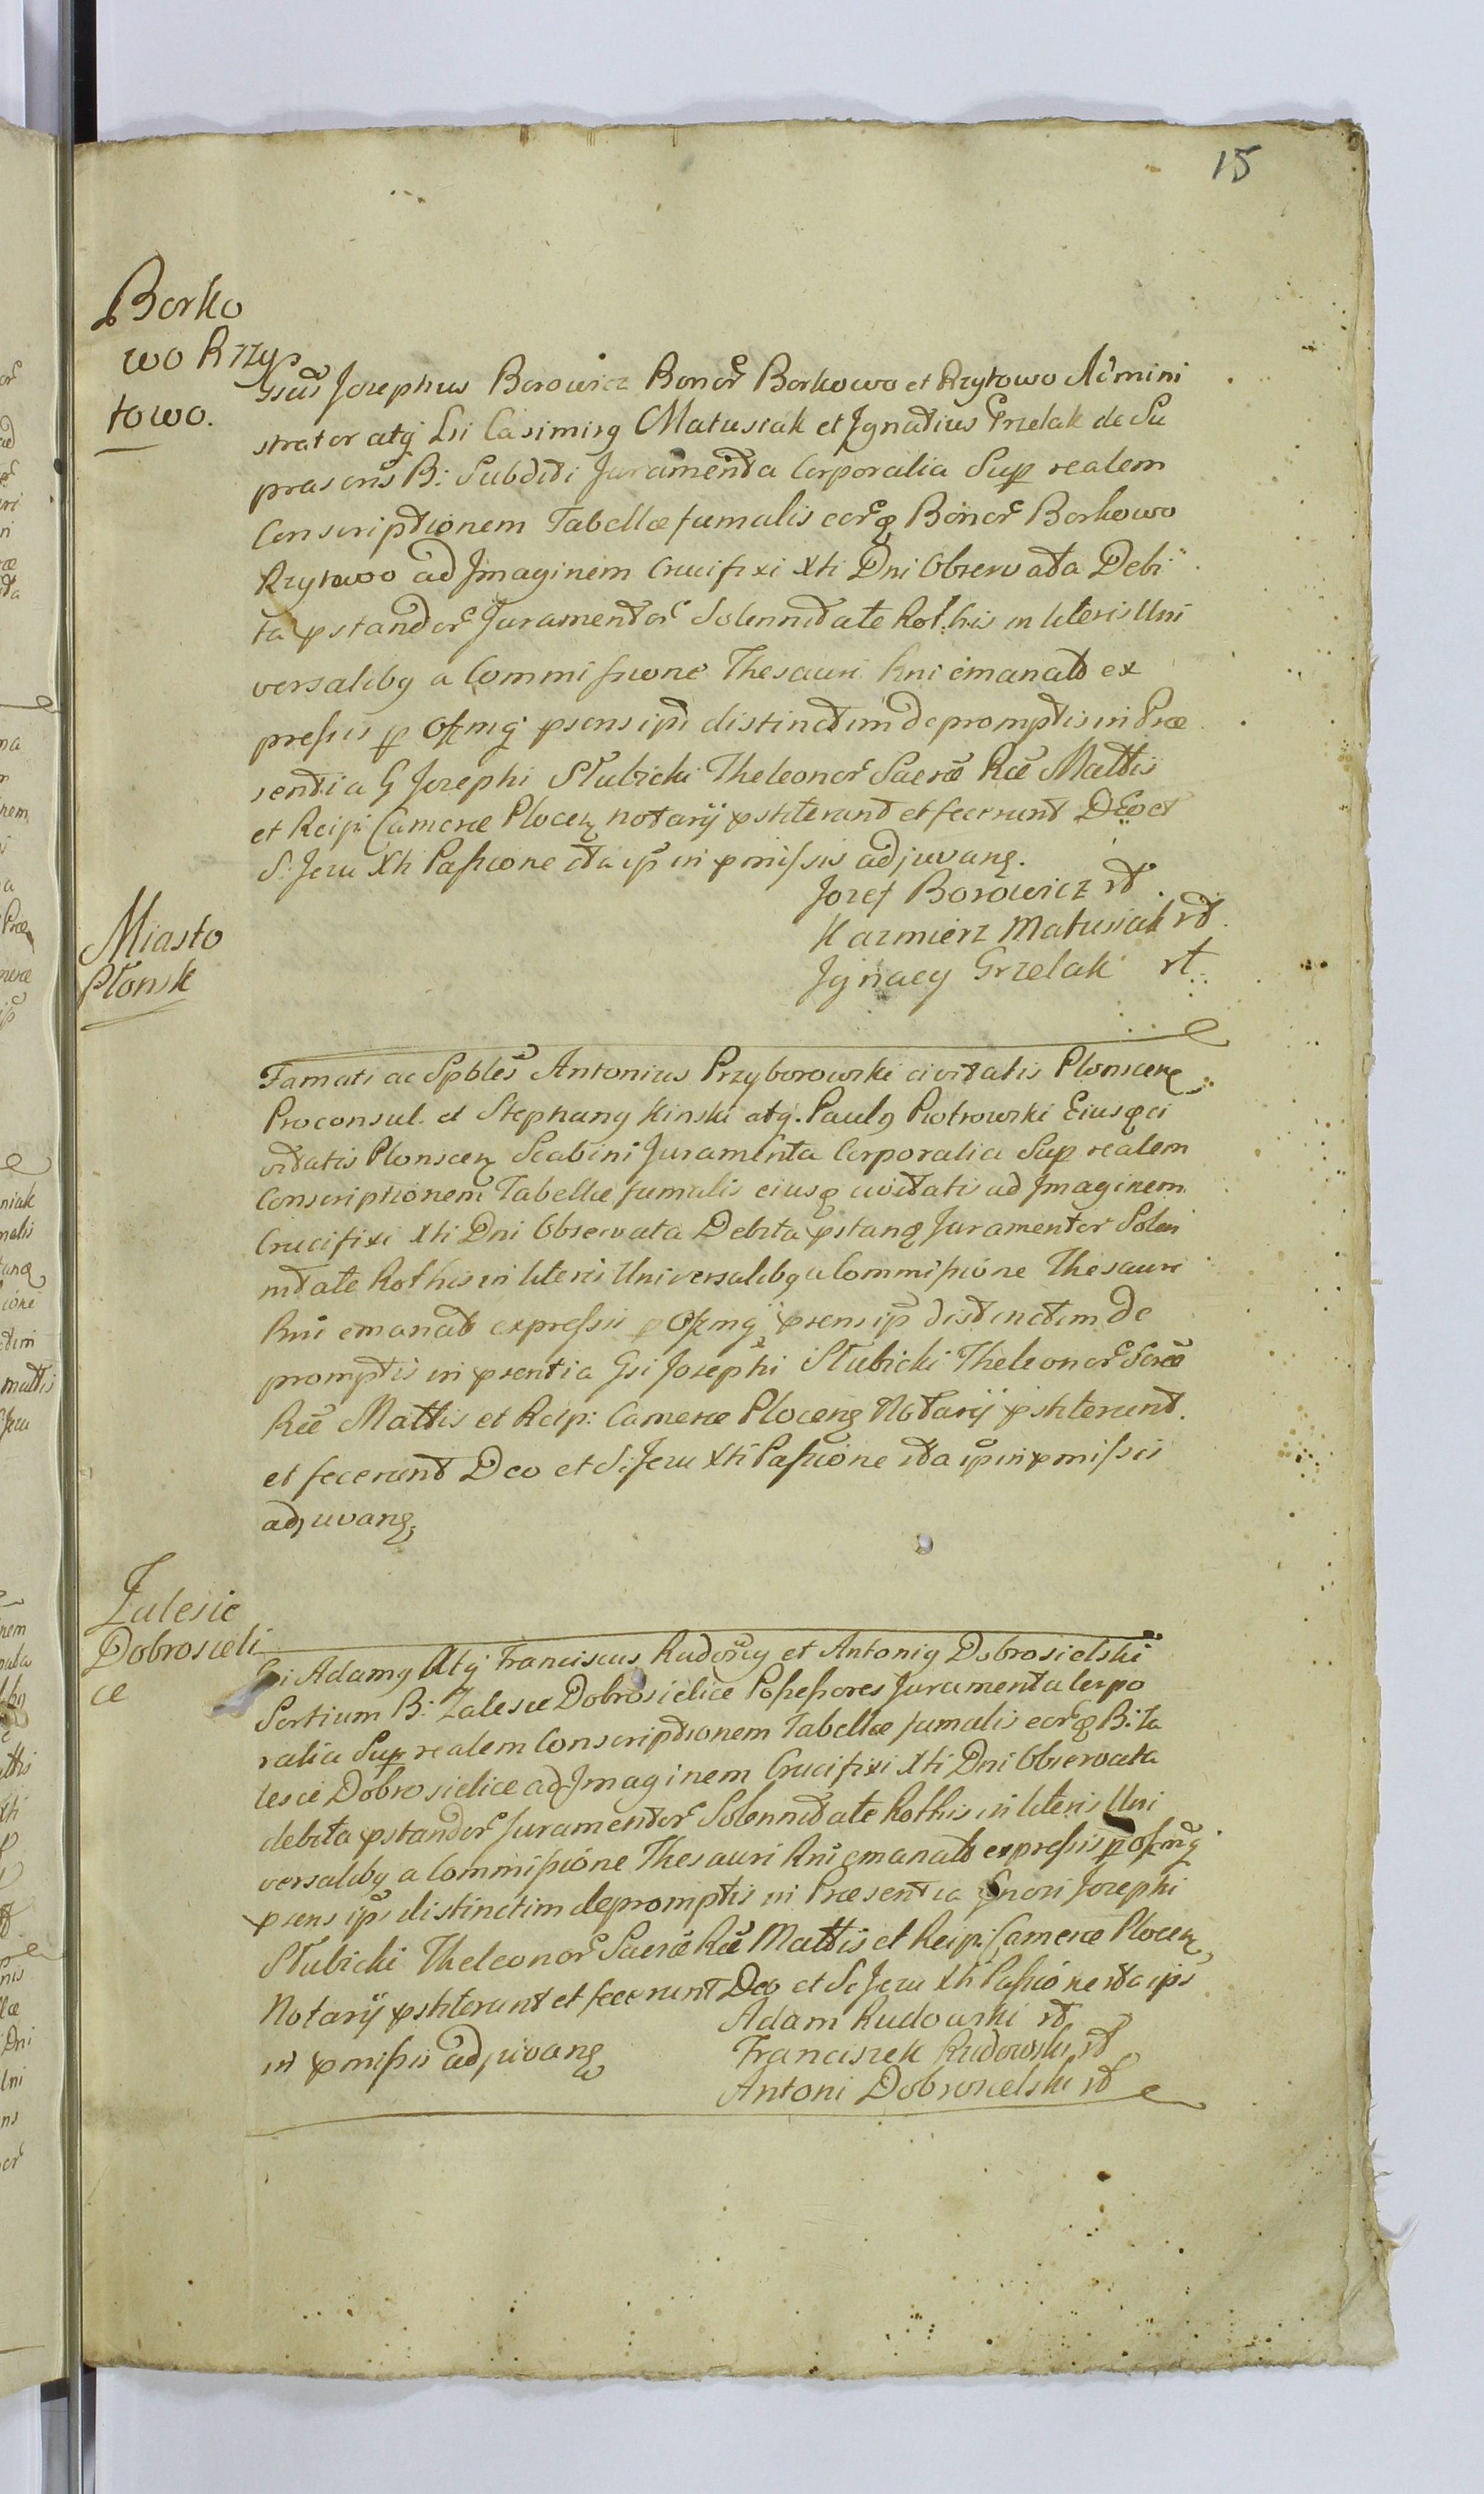 15
Borko
wo Rzy
towo.
Gsus Josephus Borowicz Bonor Borkowo et Rzytowo Admini
strator atq Lri Casimirg Matusiak et Jgnatius Grzelak de Su
prascris B: Subditi Juramenta Corporalia Sup realem
Conscriptionem Tabellæ fumalis eorq Bonor Borkowo
Rzytowo ad Jmaginem Crucifixi Xti Dni Observata Debi
ta pstandor Juramentor Solennitate Rothis in literis Uni
versalibg a Commissione Thesauri Rni emanatt ex
pressis p Offmg psens ips distinctim depromptis in Præ
sentia G Josephi Słubicki Theleonor Sacræ Ræ Mattis
et Reip: Cameræ Plocen notarij pstiterunt et fecerunt Deo et
S. Jesu Xti Passione ita ips in pmissis adjuvang.
Jozef Borowicz rt
Kazmierz Matusiak rt.
Jgnacy Grzelak rt.
Miasto
Płonsk
Famati ac Spbles Antonius Przyborowski civitatis Plonscen
Proconsul et Stephang Kinski atq. Paulg Piotrowski Eiusq ci
vitatis Plonscen Scabini Juramenta Corporalia Sup realem
Conscriptionem Tabellæ fumalis eiusq civitatis ad Jmaginem
Crucifixi Xti Dni Observata Debita pstang Juramentor Solen
nitate Rothis in literis Universalibg a Commissione Thesauri
Rni emanatt expressis p Offmg psens ips distinctim de
promptis in psentia Gsi Josephi Słubicki Theleonor Scræ
Ræ Mattis et Reip: Cameræ Plocens Notarij pstiterunt.
et fecerunt Deo et S: Jesu Xti Passione ita ips in pmissis
adjuvang;
Zalesie
Dobrosieli
ce
Gsi Adamg Atq Franciscus Rudoscy et Antonig Dobrosielski
Sortium B: Zalesie Dobrosielice Possessores Juramenta Corpo
ralia Sup realem Conscriptionem Tabellæ fumalis eorq B: Za
lesie Dobrosielice ad Jmaginem Crucifixi Xti Dni Observata
debita pstandor Juramentor Solennitate Rothis in literis Uni
versalibg a Commissione Thesauri Rni emanatt expressis p Offmg
psens ips distinctim depromptis in Præsentia Gnosi Josephi
Słubicki Theleonor Sacræ Ræ Mattis et Reip: Cameræ Plocen
Notarij pstiterunt et fecerunt Deo et S. Jesu Xti Passione ita ips
in pmissis adjuvang
Adam Rudowski rt
Franciszek Rudowski rt
Antoni Dobrosielski rt